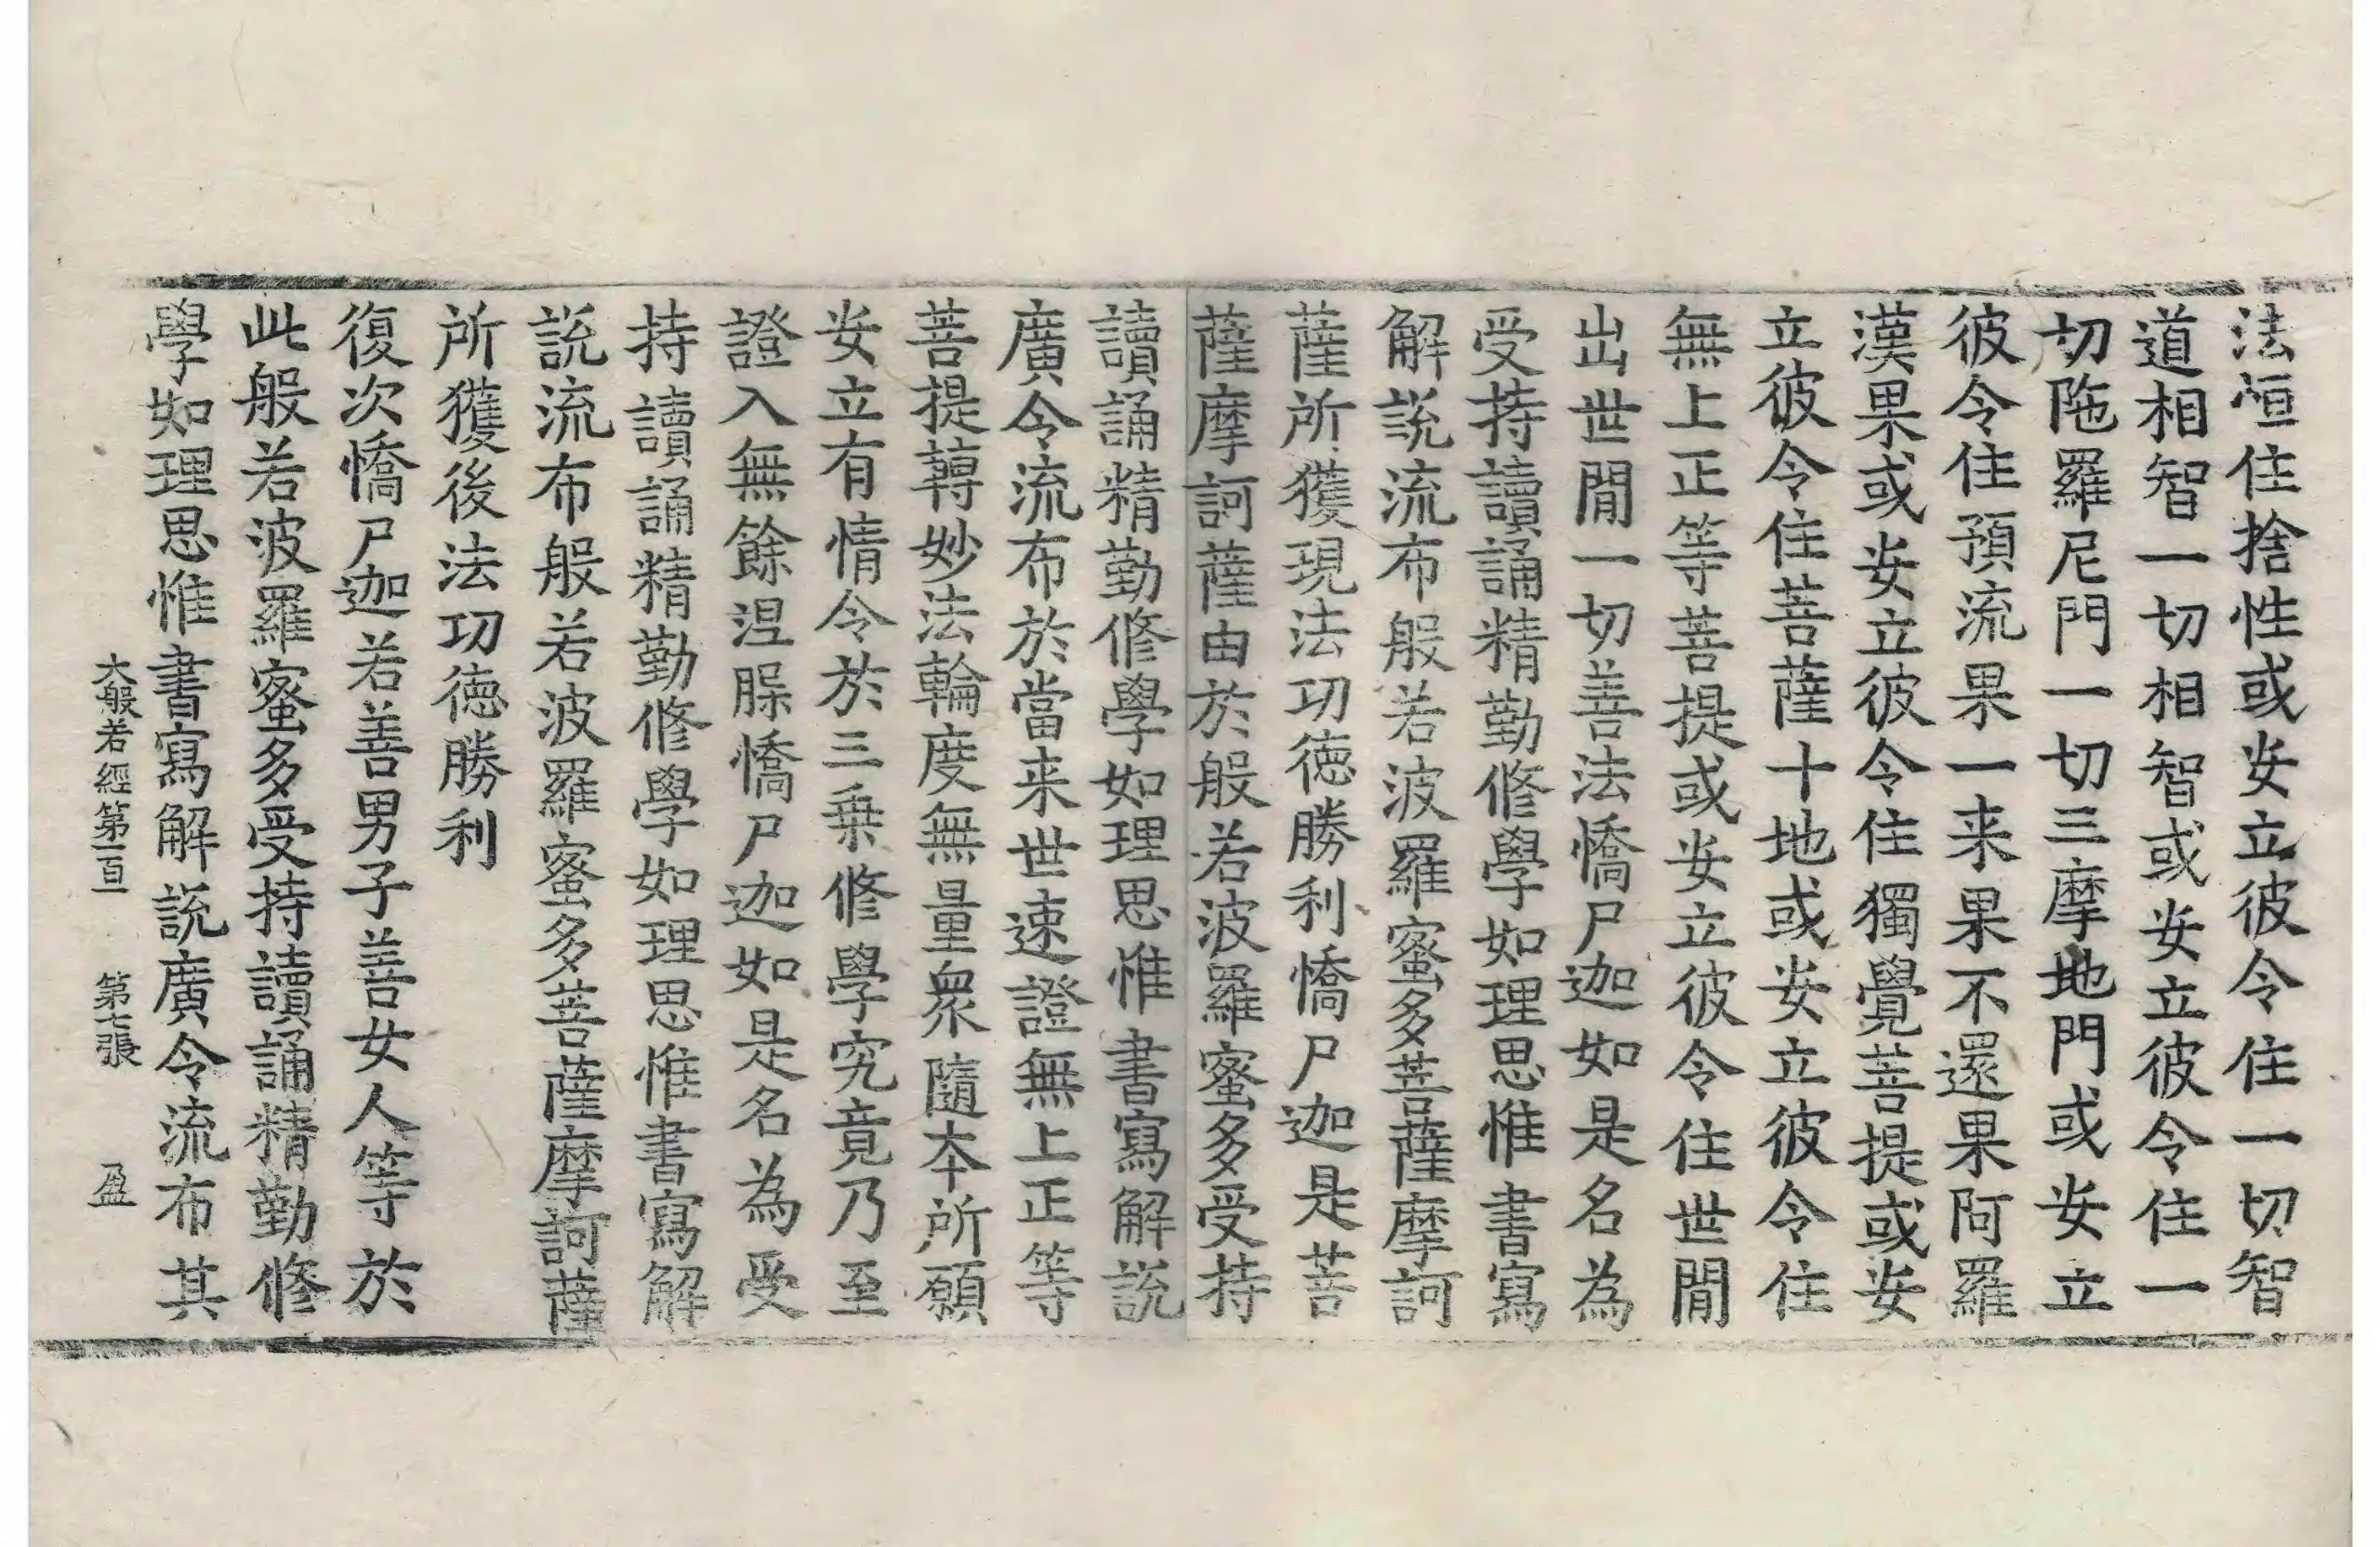 法恒住捨性或安立彼令住一切智
道相智一切相智或安立彼令住一
切陁羅尼門一切三摩地門或安立
彼令住預流果一来果不還果阿羅
漢果或安立彼令住獨覺菩提或安
立彼令住菩薩十地或安立彼令住
無上正等菩提或安立彼令住世閒
出世閒一切善法憍尸迦如是名為
受持讀誦精勤修學如理思惟書寫
解說流布般若波羅蜜多菩薩摩訶
薩所獲現法功德勝利憍尸迦是菩
薩摩訶薩由於般若波羅蜜多受持
讀誦精勤修學如理思惟書寫解說
廣令流布於當来世速證無上正等
菩提轉妙法輪度無量眾隨本所願
安立有情令於三乗修學究竟乃至
證入無餘涅腺憍尸迦如是名為受
持讀誦精勤修學如理思惟書寫解
說流布般若波羅蜜多菩薩摩訶薩
所獲後法功德勝利
復次憍尸迦若善男子善女人等於
此般若波羅蜜多受持讀誦精勤修
學如理思惟書寫解說廣令流布其
大般若經第一百一 第七張 盈